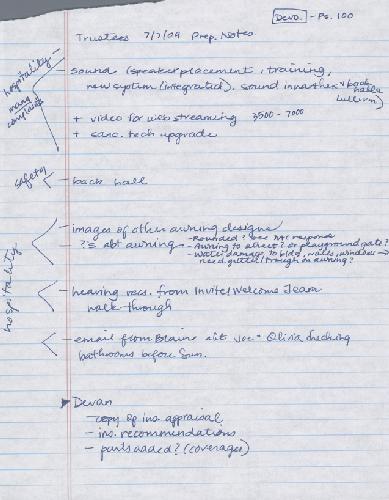 Devo. - Ps. 100
Trustees 7/7/09 Prep. Notes
hospitality
many complaints
- sound (speaker placement, training,
new system (integrated). sound in narthex & back
halls
+ video for web streaming 3500 - 7000
+ sanc. tech upgrade
safety
- back hall
hospitality
- images of other awning designs
- ?s abt awning - Rounded?
- Awning to street? or playground gate?
- Water damage to bldg, walls, windows →
need gutter/trough on awning?
- hearing recs. from Invite/Welcome Team
walk-through
- email from Blaine abt Joe - Olivia checking
bathrooms before Sun.
Devan
- copy of ins. appraisal
- ins. recommendations
- parts added? (coverages)